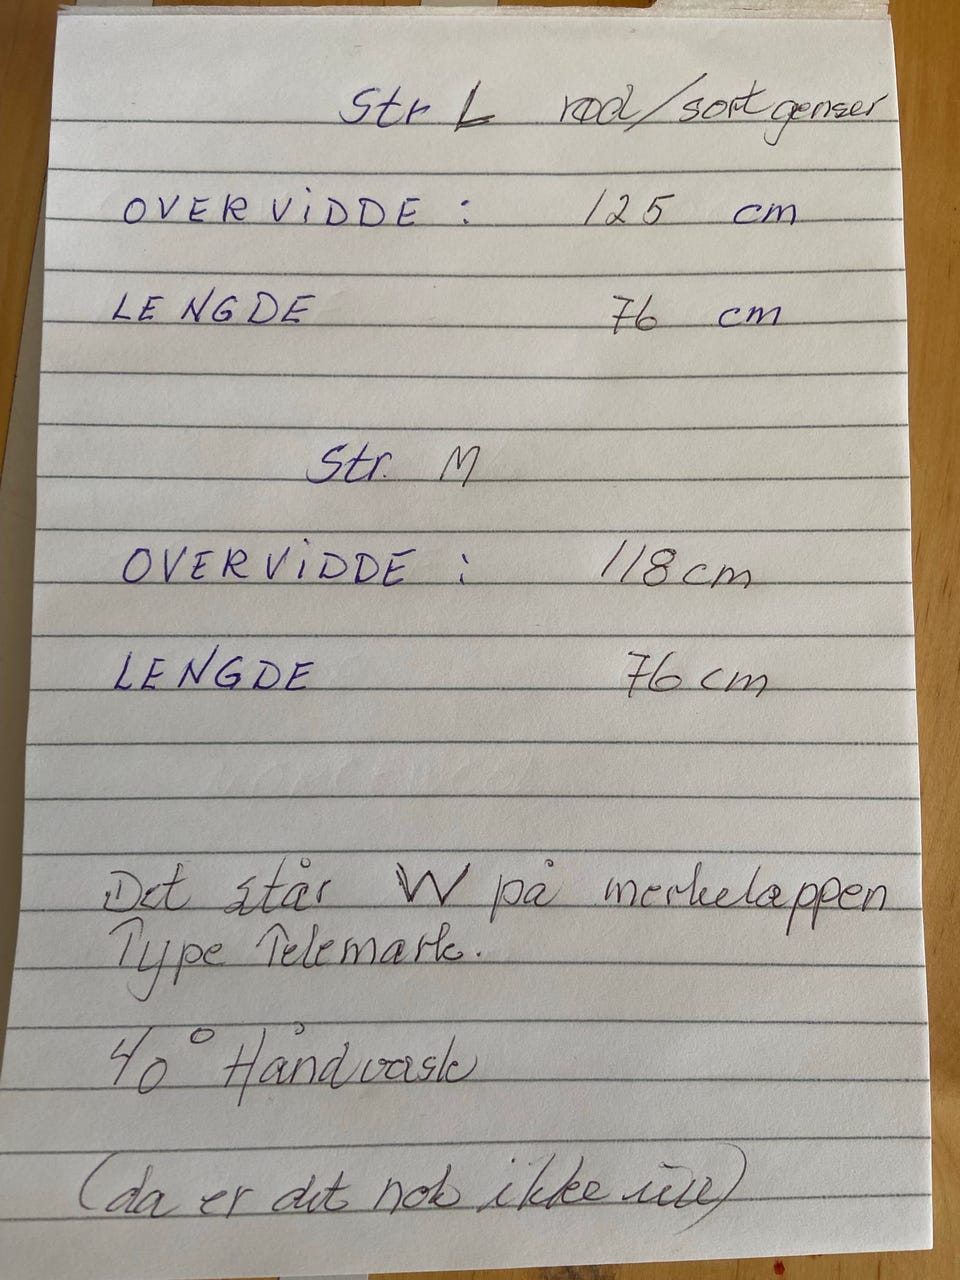 Str L rød/sort genser
OVERVIDDE : 125 cm
LENGDE 76 cm
Str. M
OVERVIDDE : 118 cm
LENGDE 76 cm
Det står W på merkelappen
Type Telemark.
40° Håndvask
(da er det nok ikke ull)